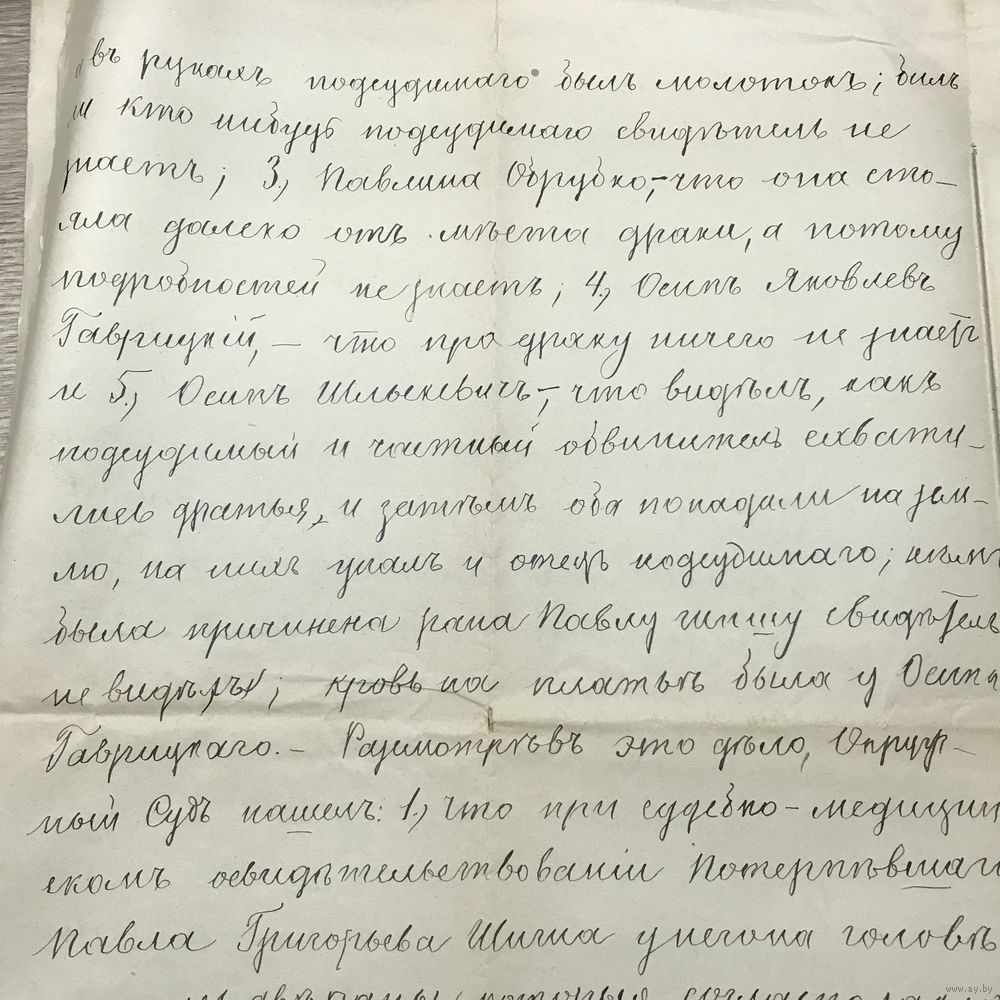 въ рукахъ подсудимаго былъ молотокъ; билъ
ли кто нибудь подсудимаго свидѣтель не
знаетъ; 3., Павлина Обрубко,-что она сто-
яла далеко отъ мѣста драки, а потому
подробностей не знаетъ; 4., Осипъ Яковлевъ
Гаврицкій, - что про драку ничего не знаетъ
и 5., Осипъ Шлыкевичъ-, что видѣлъ, какъ
подсудимый и частный обвинитель схвати-
лись драться, и затѣмъ оба попадали на зем-
лю, на нихъ упалъ и отецъ подсудимаго; кѣмъ
была причинена рана Павлу свидѣтель
не видѣлъ; кровь на платьѣ была у Осипа
Гаврицкаго. - Разсмотрѣвъ это дѣло, Окруж-
ный Судъ нашелъ: 1., что при судебно-медицин
скомъ освидѣтельствованіи потерпѣвшаго
Павла Григорьева у него на головѣ
www.ay.by